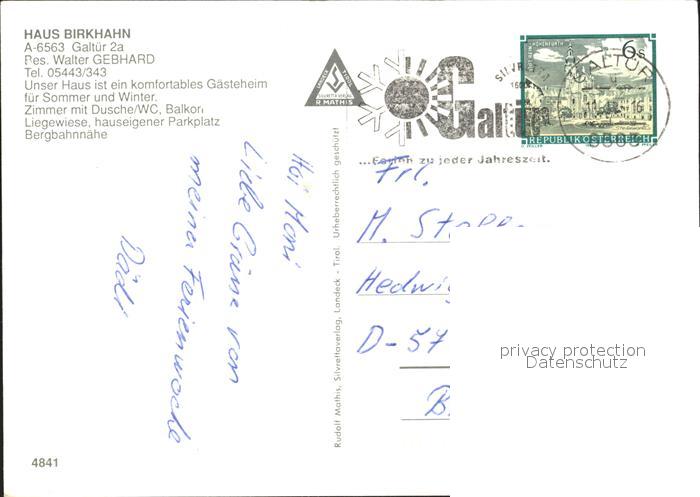 HAUS BIRKHAHN
A-6563 Galtür 2a
Bes. Walter GEBHARD
Tel. 05443/343
Unser Haus ist ein komfortables Gästeheim
für Sommer und Winter.
Zimmer mit Dusche/WC, Balkon
Liegewiese, hauseigener Parkplatz
Bergbahnnähe
Hoi Moni
Liebe Grüsse von
meiner Ferienwoche
4841
Rudolf Mathis, Silvrettaverlag, Landeck - Tirol. Urheberrechtlich geschützt
R MATHIS
Galtür
...Ferien zu jeder Jahreszeit.
6 S
REPUBLIK ÖSTERREICH
GALTÜR
Frl.
M.
D-57
privacy protection
Datenschutz